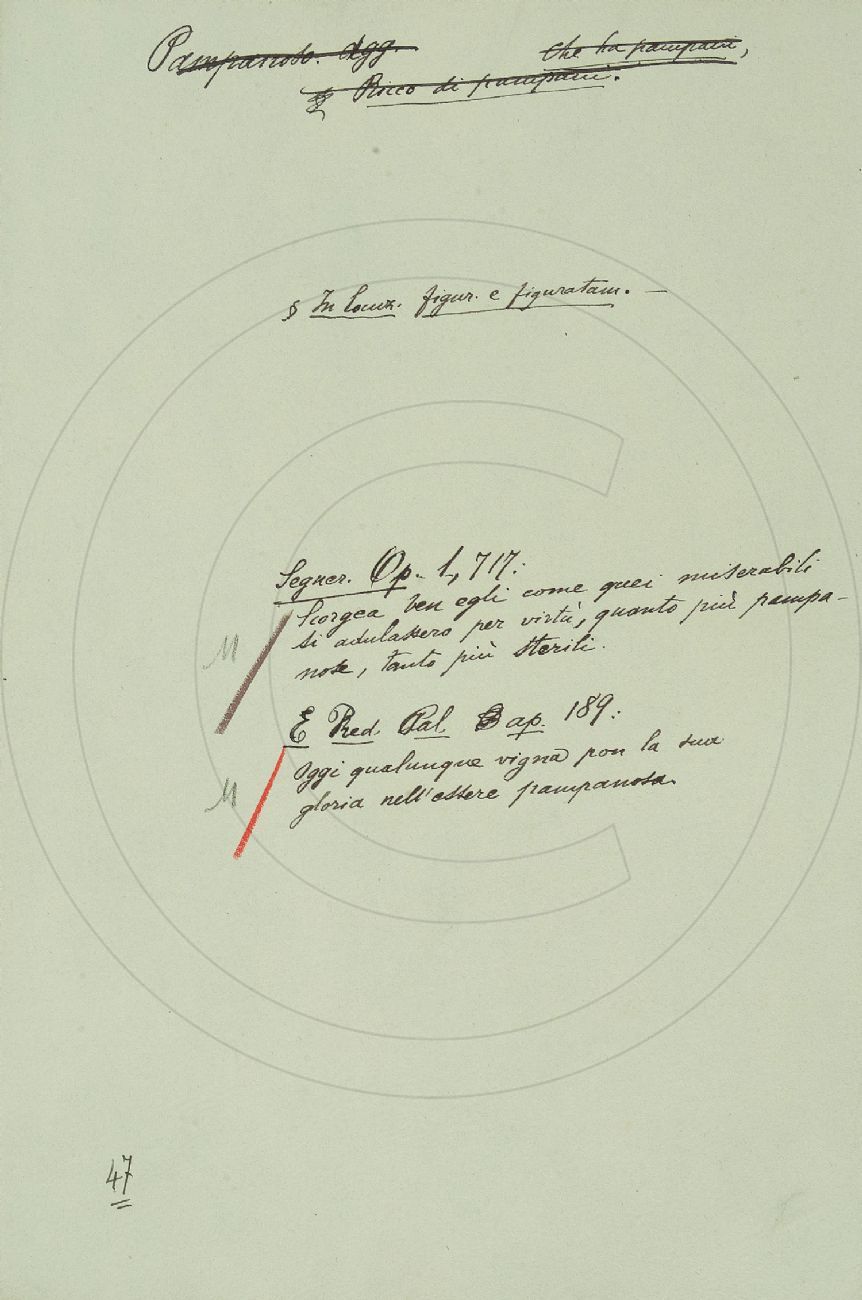 Pampanoso. Agg. Che ha pampani,
§ Ricco di pampani.
§ In locuz. figur. e figuratam. —
Segner. Op. 1, 717:
Scorgea ben egli come quei miserabili
si adulassero per virtù, quanto più pampa-
nose, tanto più sterili.
M
E Pred. Pal. ap. 189:
Oggi qualunque vigna pon la sua
gloria nell'essere pampanosa.
M
47